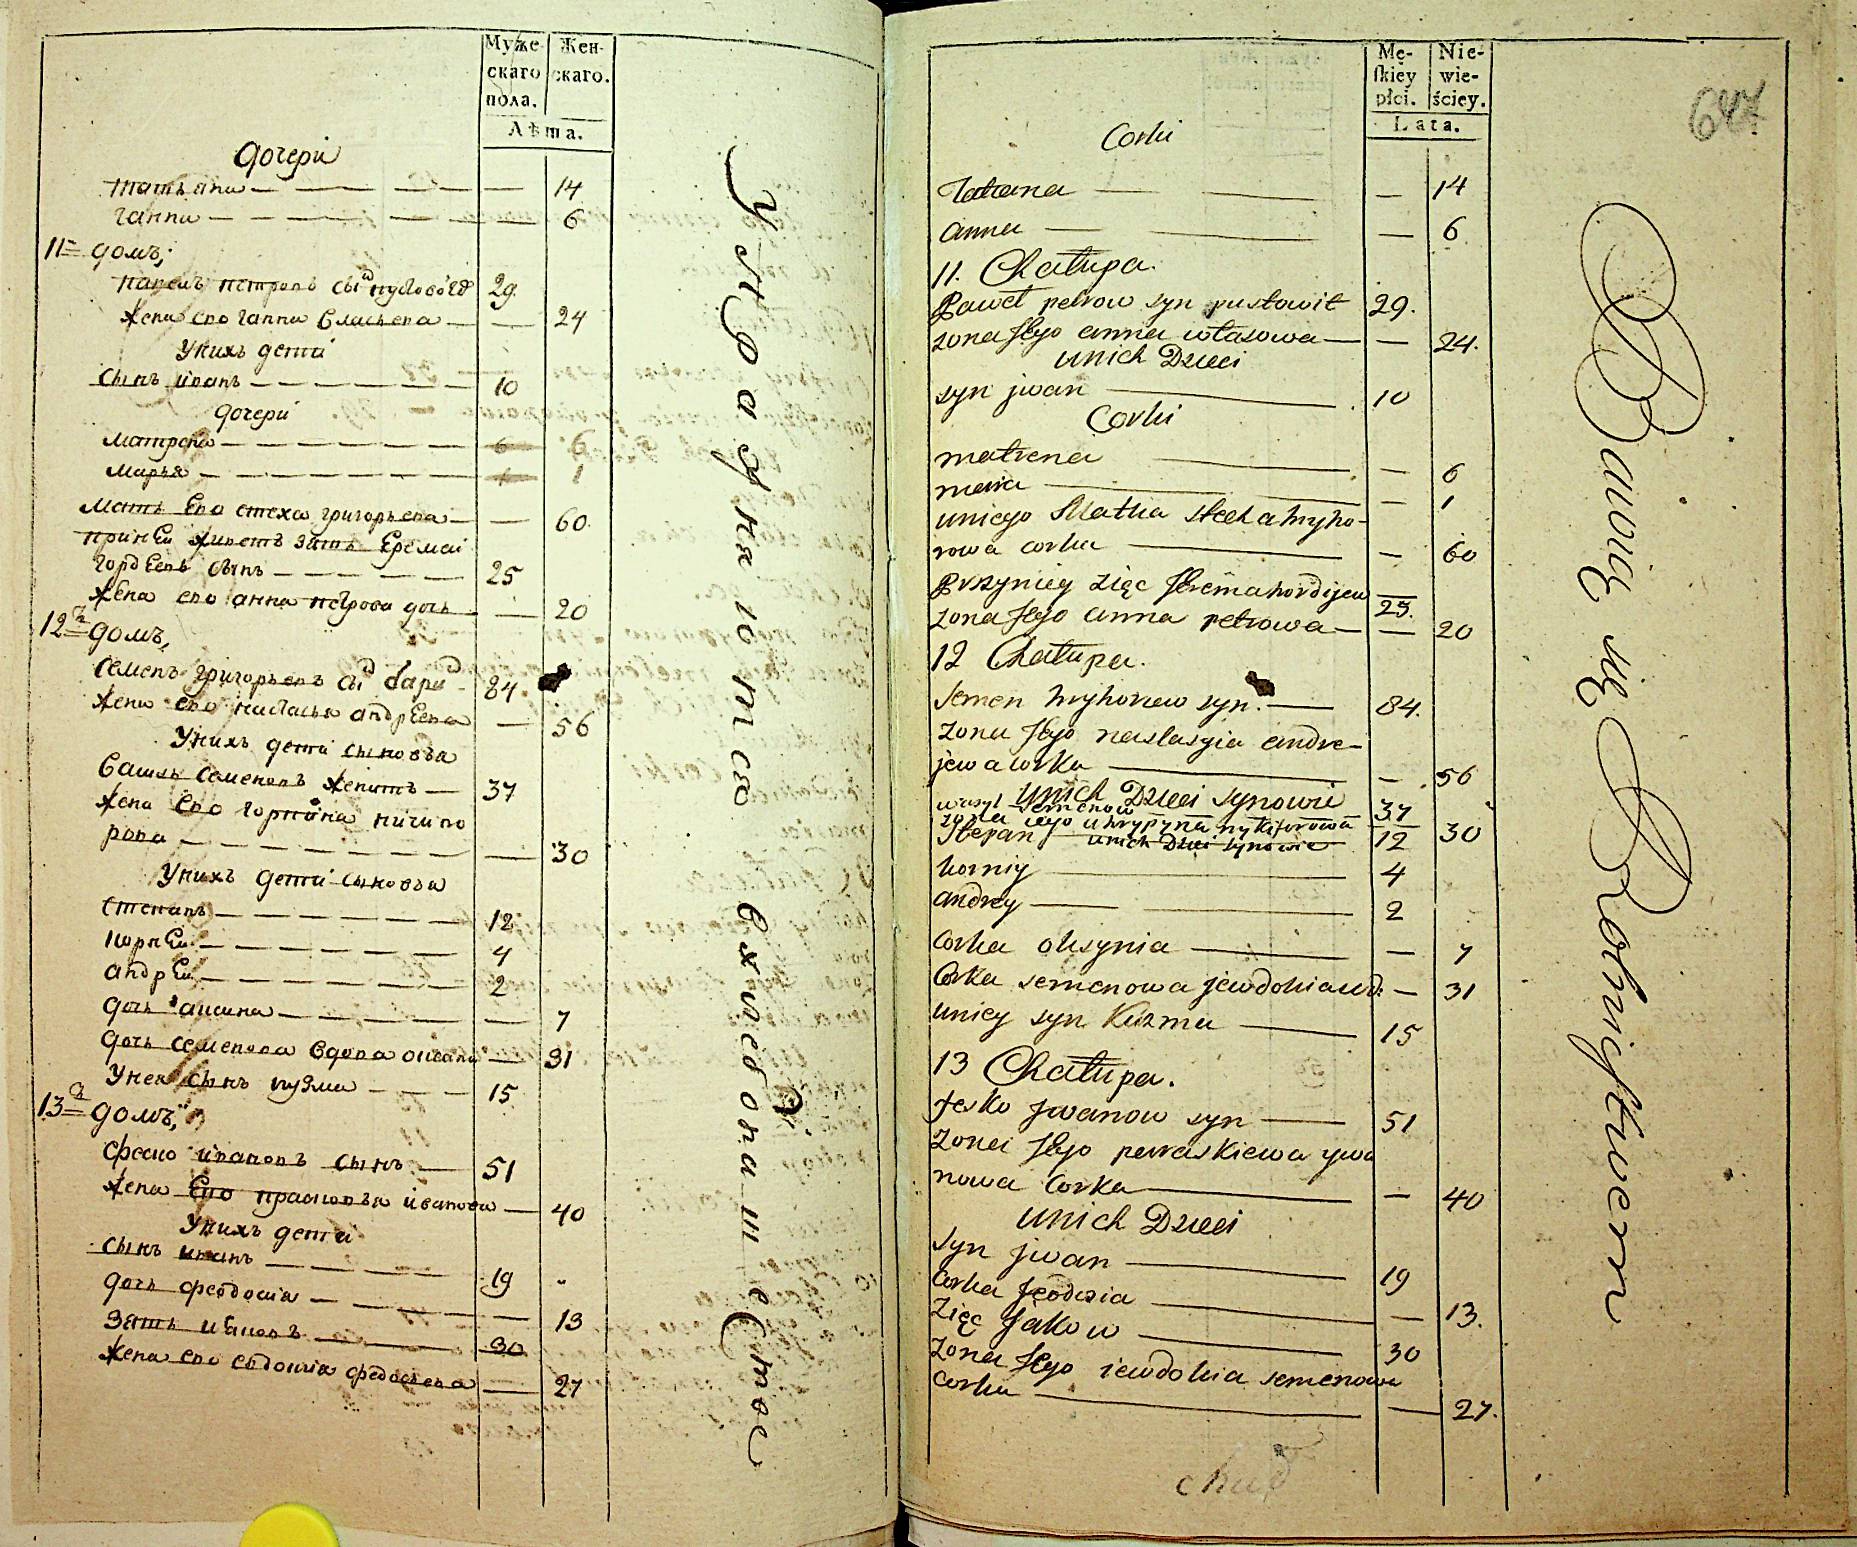 Муже-
скаго
пола.
Жен-
скаго.
Лѣта.
дочери
татьяна — — — — — 14
ганна — — — — — 6
11й домъ,
павелъ петровъ сынъ пустовойт 29
жена ево ганна власьева — — 24
У нихъ дети
сынъ иванъ — — — — 10
дочери
матрена — — — — 6 6
марья — — — — 1 1
мать ево стеха григорьева — — 60
при ней живетъ зять Еремей
гордеевъ сынъ — — — — 25
жена ево анна петрова дочь — 20
12й домъ,
семенъ григорьевъ сынъ 84
жена ево настасья андреева — 56
У нихъ дети сыновья
василь семеновъ женатъ — 37
жена ево горпина ничипо
рова — — — — — 30
У нихъ дети сыновья
степанъ — — — — 12
корней — — — — 4
андрей — — — — 2
дочь — — — — 7
дочь семенова вдова — 31
У нея сынъ кузма — — — 15
13й домъ,
феско ивановъ сынъ — 51
жена Ево прасковья иванова — 40
У нихъ дети
сынъ иванъ — — — — 19
дочь феодосия — — — — 13
зять яковъ — — — 30
жена ево евдокия — 27
Упражняются в хлебопашестве
Mę-
ſkiey
płci.
Nie-
wie-
ściey.
Lata.
647
Corki
Tatiana — — — 14
anna — — — 6
11. Chałupa.
Paweł petrow syn pustowit 29.
zona Jego anna własowa — — 24.
unich Dzieci
syn jwan — 10
Corki
matrena — — 6
maria — — 1
uniego Matka stecha hryho-
rowa corka — — 60
Przyniey zięc Jerema hordijew 25.
zona Jego anna petrowa — — 20
12 Chałupa.
semen hryhoriew syn. — 84.
zona Jego nastasyia andre-
jewa corka — — 56
unich Dzieci synowie
wasyl semenow 37
zona iego uhrypyna nykiforowa 30
Stepan unich Dzieci synowie 12
korniy — 4
andrey — 2
corka oksynia — — 7
Corka semenowa jewdokia wd: — 31
uniey syn Kuzma — 15
13 Chałupa.
fesko jwanow syn — 51
zona Jego perraskiewa ywa
nowa Corka — — 40
unich Dzieci
syn jwan — 19
corka feodosia — — 13.
zięc jakow — 30
zona Jego iewdokia semenowa
corka — — 27.
Bawią się Rolnictwem